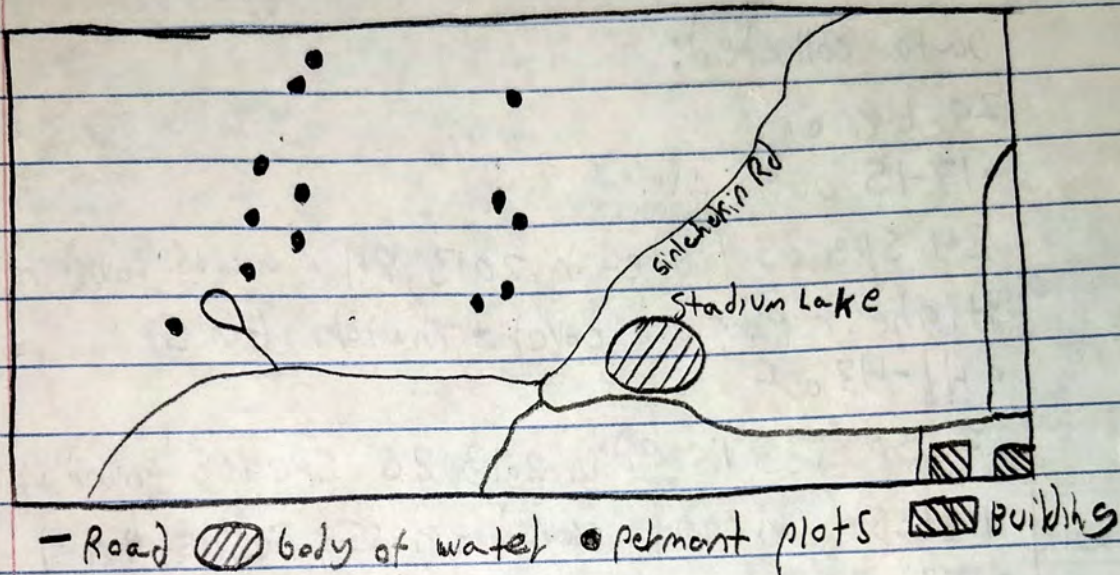 Sinlahekin Rd
Stadium Lake
Road body of water permant plots Building